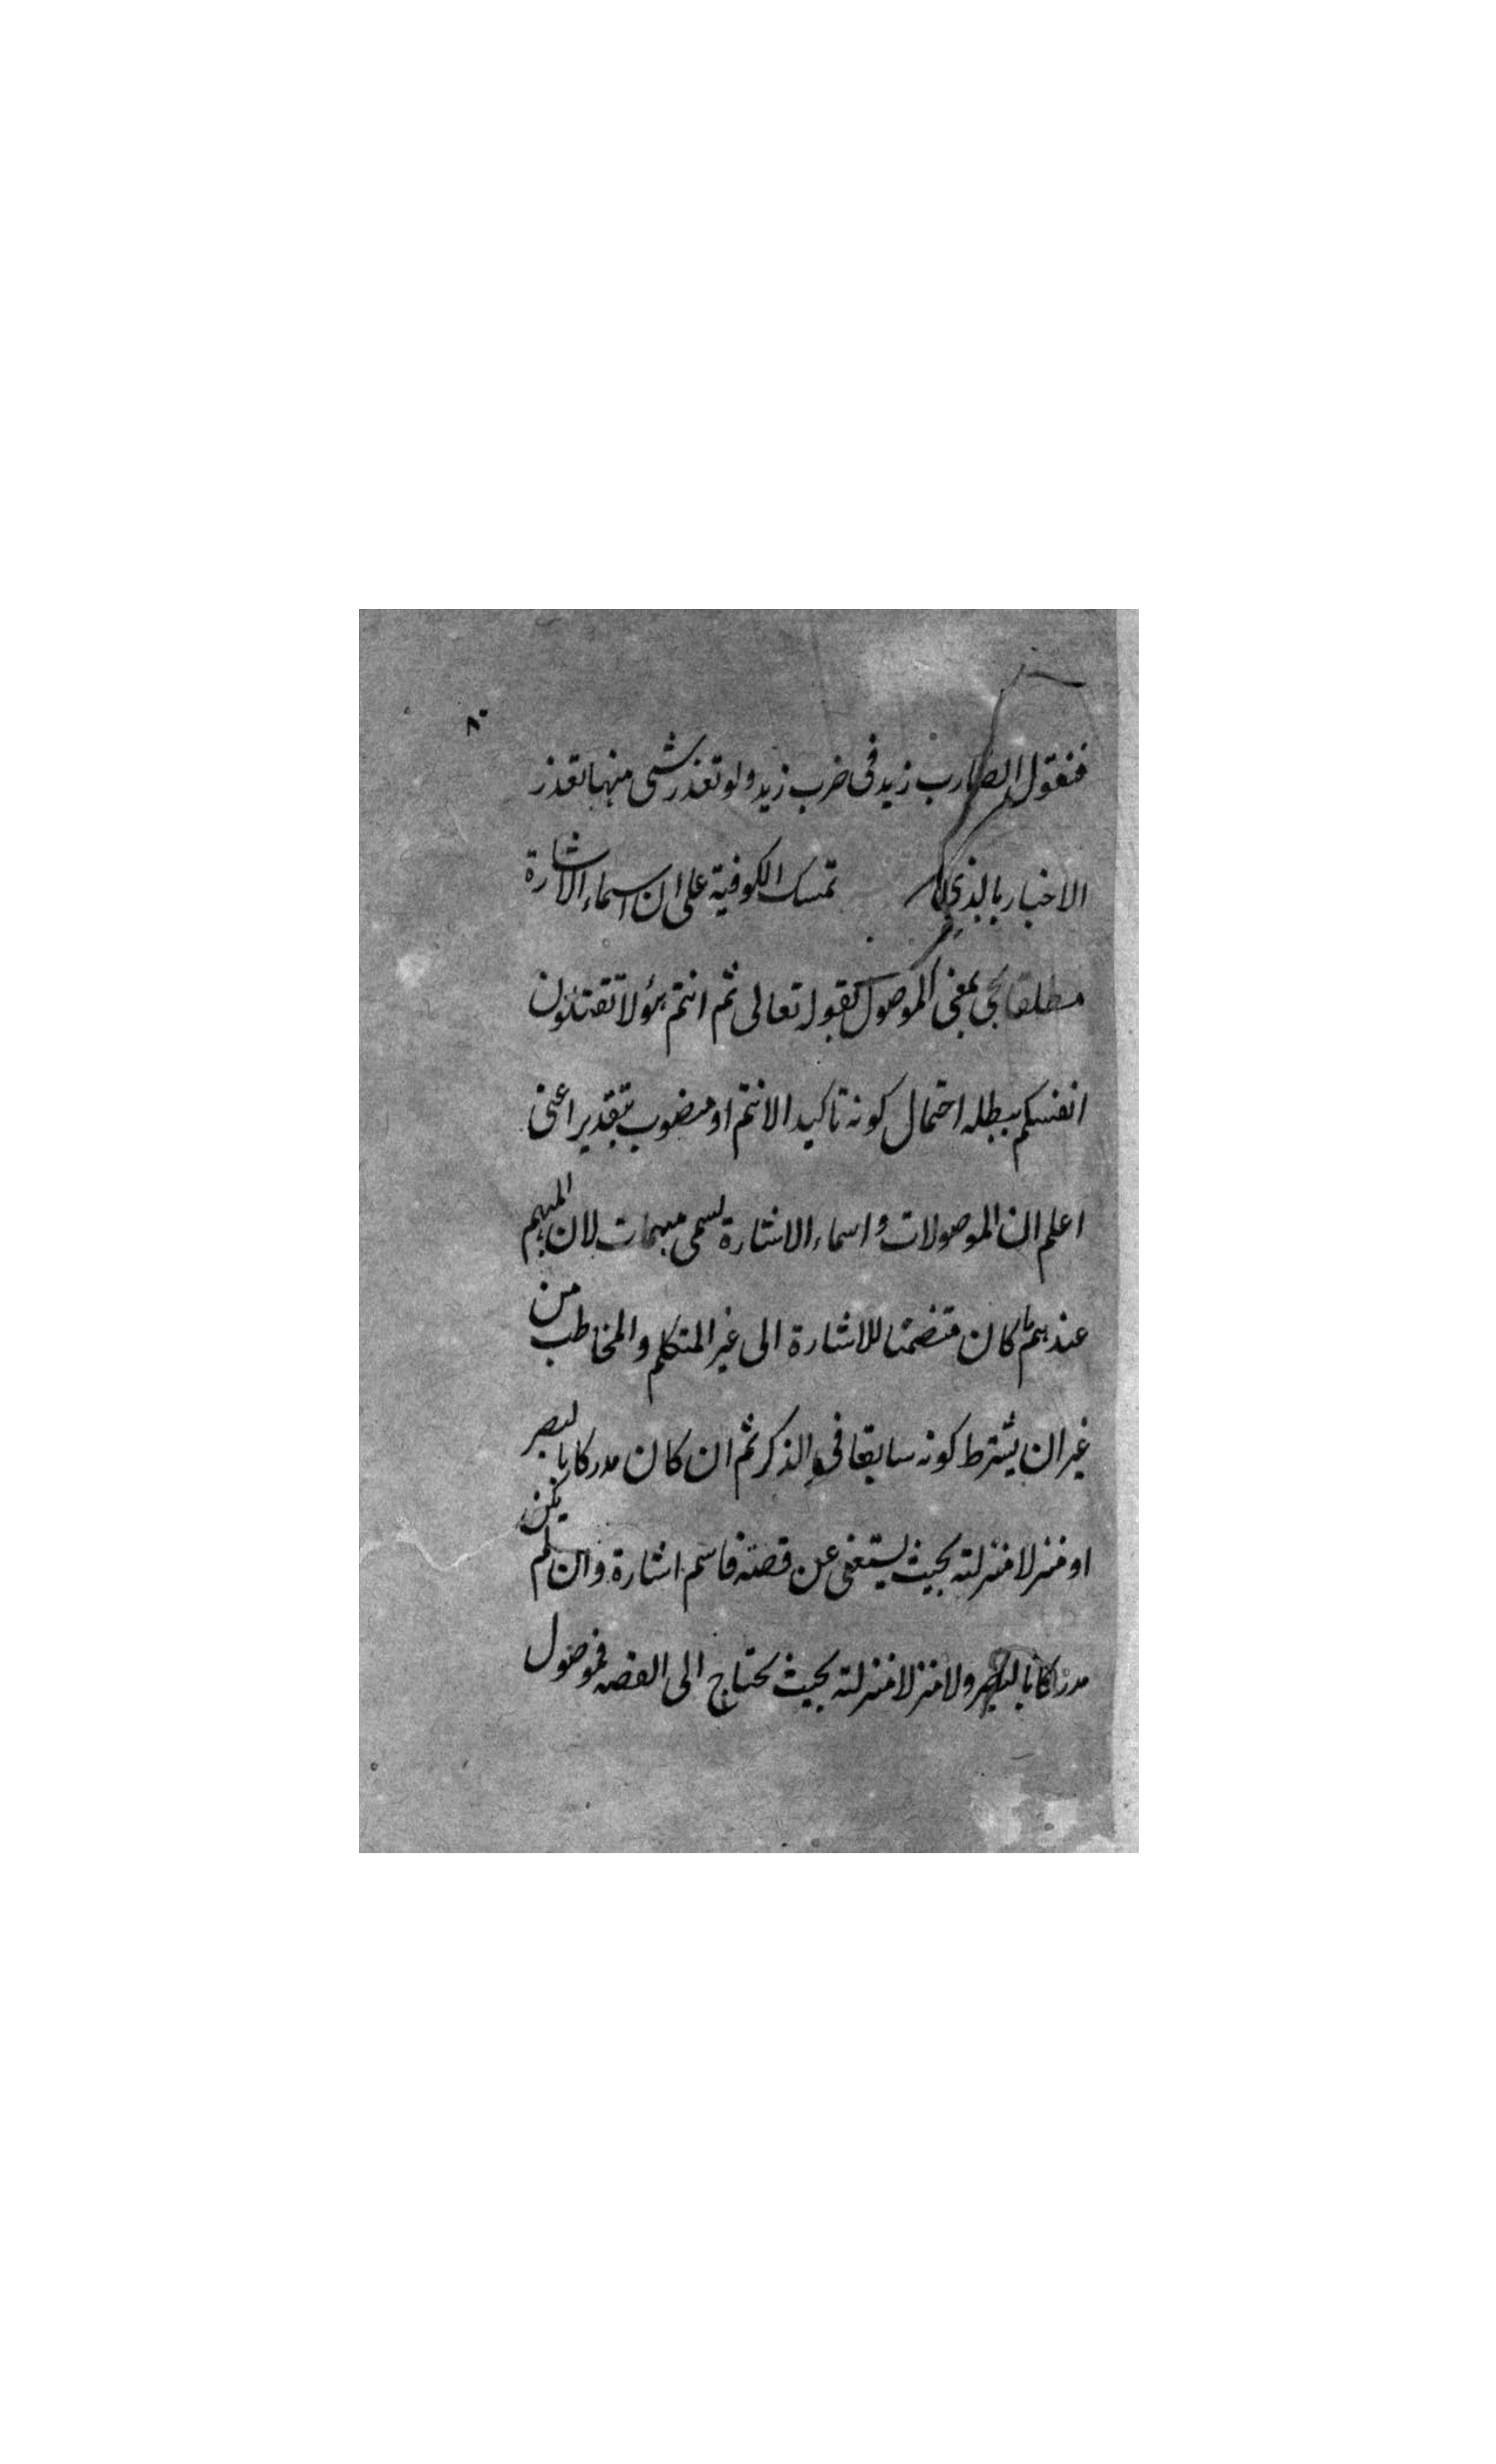 ٨٠
فنقول الضارب زيد فى ضرب زيد ولو تعذر شى منها تعذر
الاخبار بالذى تمسك الكوفية على ان اسماء الاشارة
مطلقا يجى بمعنى الموصول بقوله تعالى ثم انتم هؤلا تقتلون
انفسكم يبطله احتمال كونه تاكيد الانتم او منصوب بتقدير اعنى
اعلم ان الموصولات و اسماء الاشارة تسمى مبهمات لان المبهم
عندهم ما كان متضمنا للاشارة الى غير المتكلم والمخاطب من
غير ان يشترط كونه سابقا فى الذكر ثم ان كان مدركا بالبصر
او منزلا منزلته بحيث يستغنى عن قصته فاسم اشارة وان لم يكن
مدركا بالبصر ولا منزلا منزلته بحيث يحتاج الى القصه فموصول